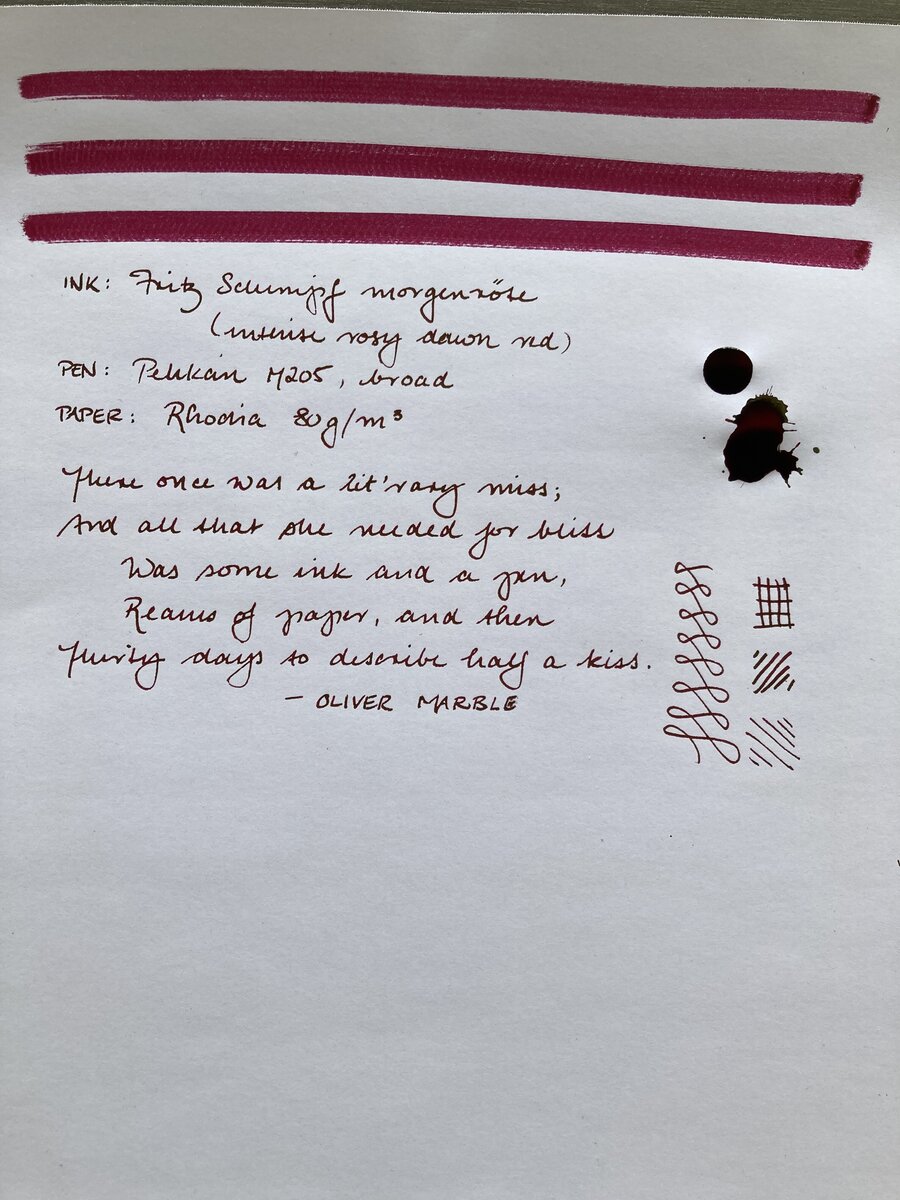 INK: Fritz Schimpf morgenröte
(intense rosy dawn red)
PEN: Pelikan M205, broad
PAPER: Rhodia 80g/m³
There once was a lit'rary miss;
And all that she needed for bliss
Was some ink and a pen,
Reams of paper, and then
Thirty days to describe half a kiss.
- OLIVER MARBLE